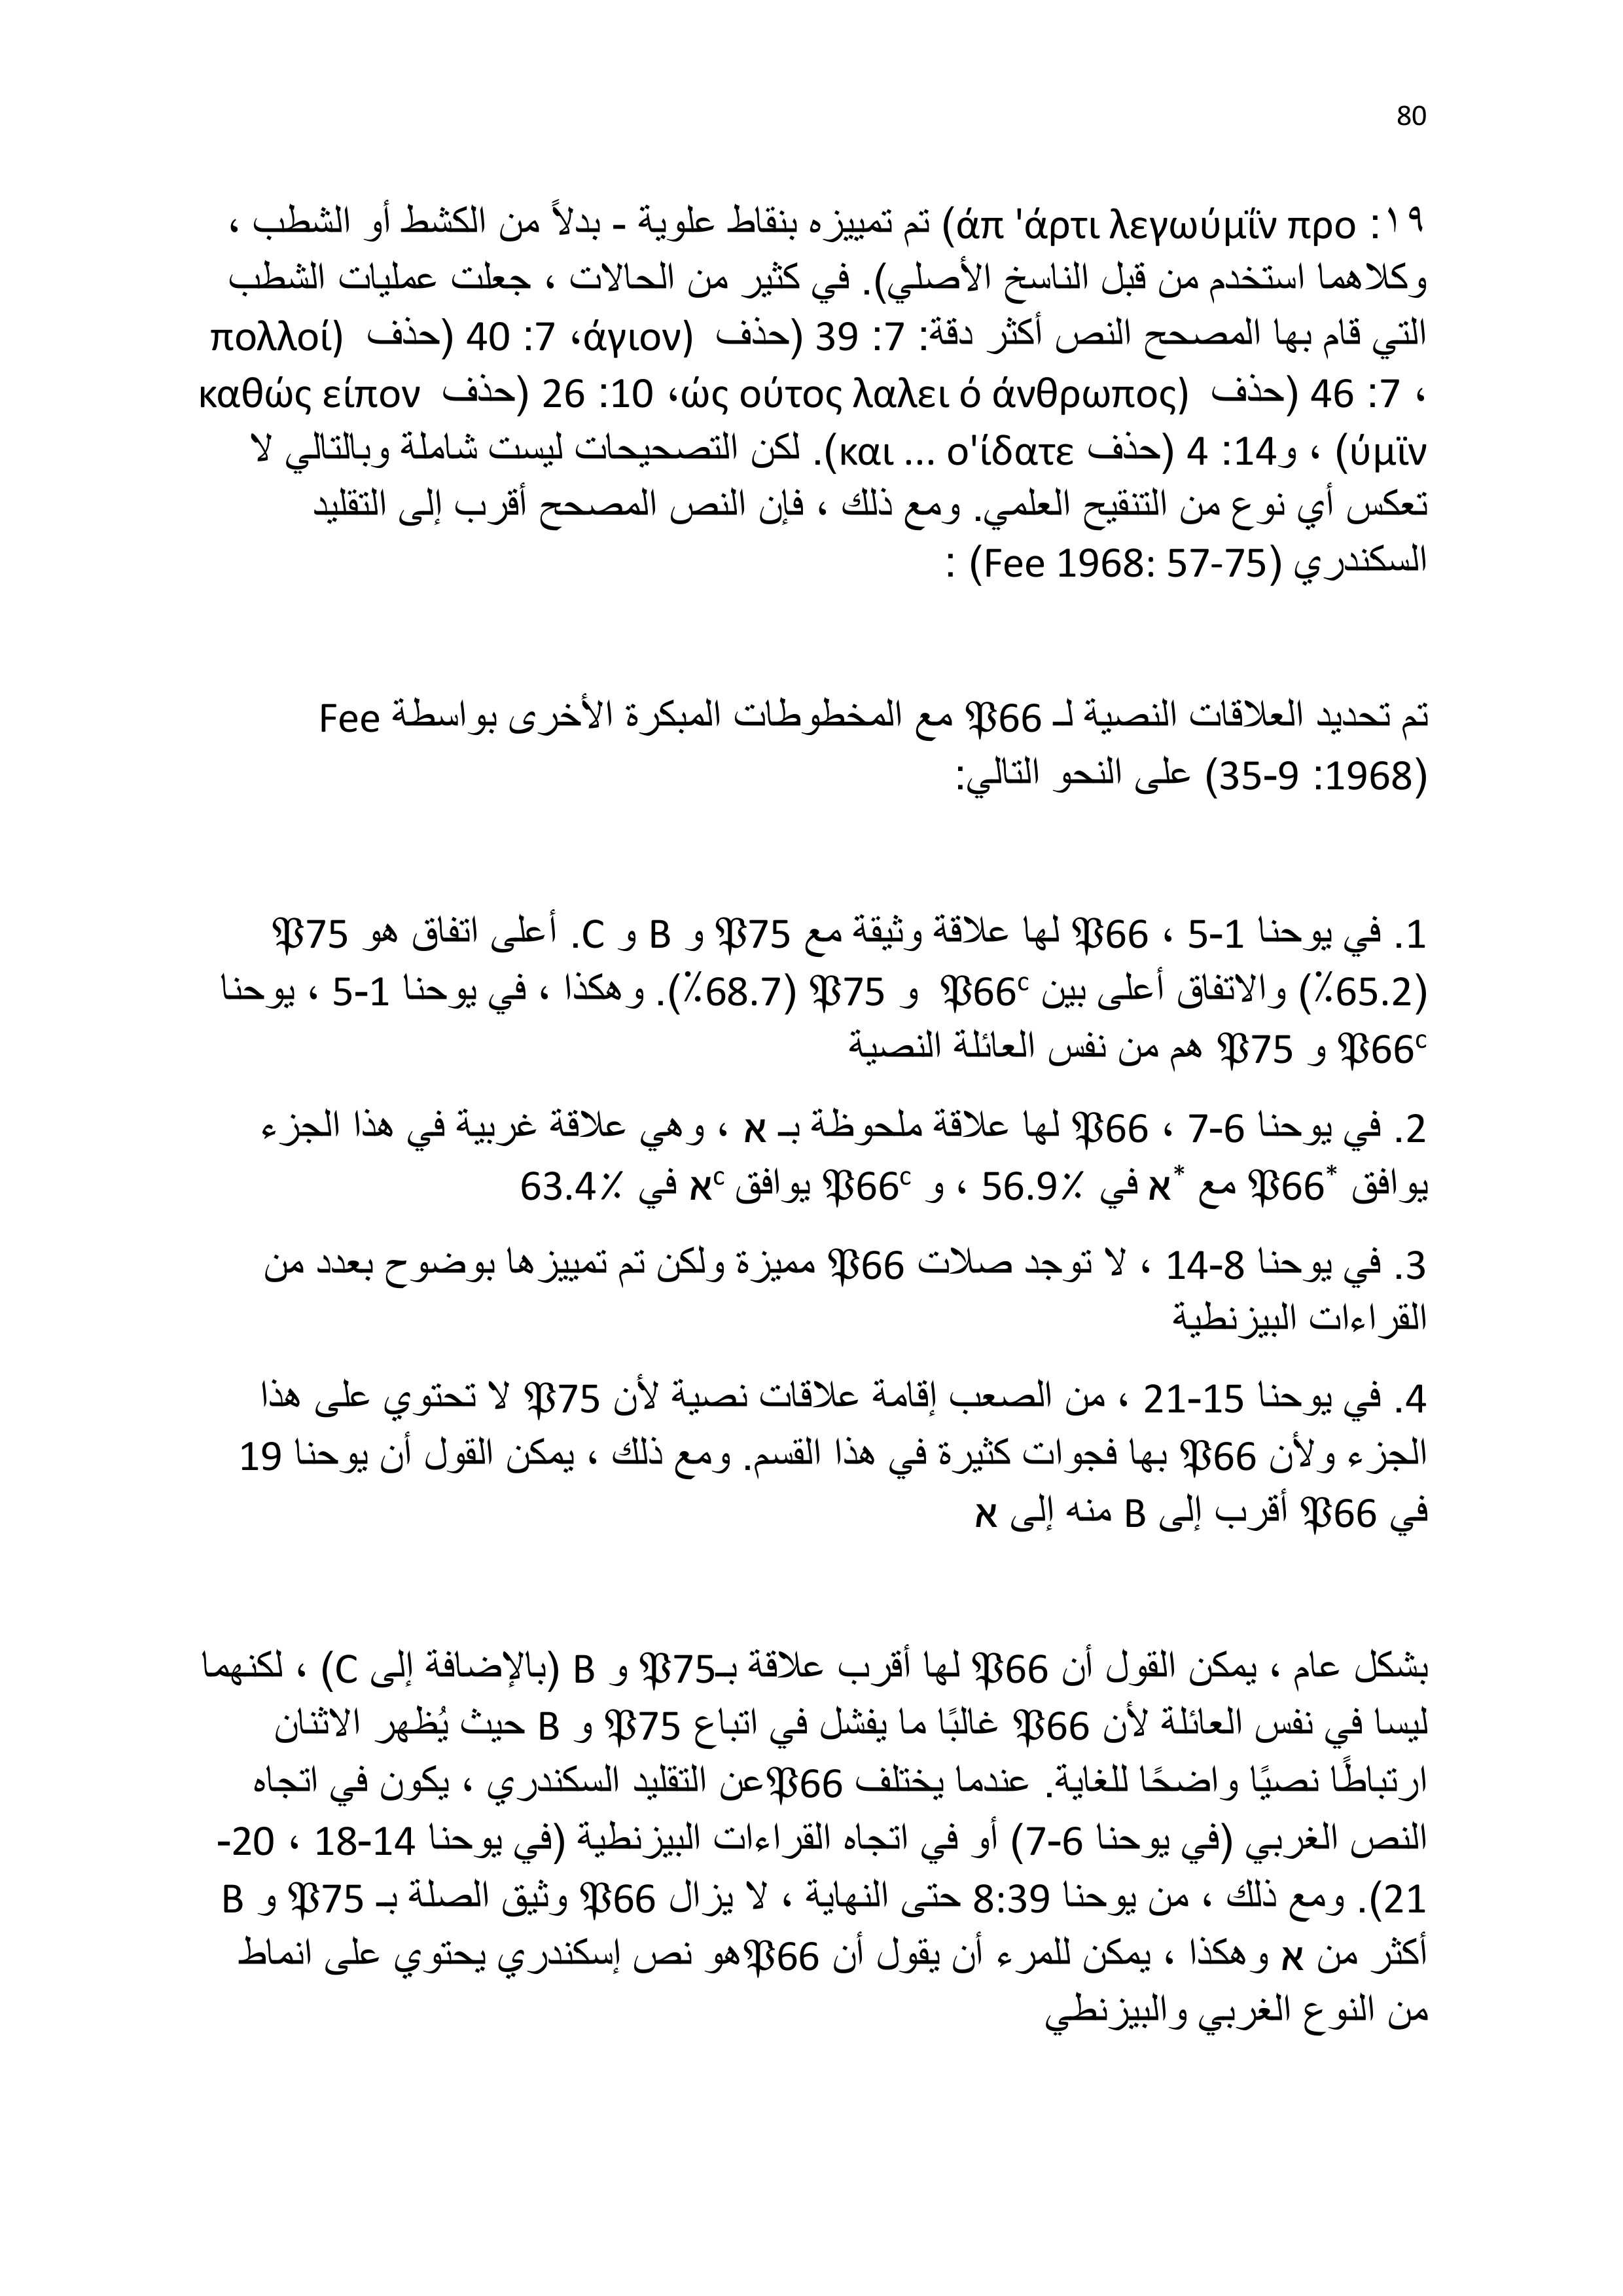 80
١٩: άπ 'άρτι λεγωύμΐν προ) تم تمييزه بنقاط علوية - بدلاً من الكشط أو الشطب ،
وكلاهما استخدم من قبل الناسخ الأصلي). في كثير من الحالات ، جعلت عمليات الشطب
التي قام بها المصحح النص أكثر دقة: 7: 39 (حذف άγιον)، 7: 40 (حذف πολλοί)
، 7: 46 (حذف ώς ούτος λαλει ό άνθρωπος)، 10: 26 (حذف καθώς είπον
ύμϊν) ، و14: 4 (حذف και ... ο'ίδατε). لكن التصحيحات ليست شاملة وبالتالي لا
تعكس أي نوع من التنقيح العلمي. ومع ذلك ، فإن النص المصحح أقرب إلى التقليد
السكندري (Fee 1968: 57-75) :
تم تحديد العلاقات النصية لـ 𝔓66 مع المخطوطات المبكرة الأخرى بواسطة Fee
(1968: 9-35) على النحو التالي:
1. في يوحنا 1-5 ، 𝔓66 لها علاقة وثيقة مع 𝔓75 و B و C. أعلى اتفاق هو 𝔓75
(65.2٪) والاتفاق أعلى بين 𝔓66ᶜ و 𝔓75 (68.7٪). وهكذا ، في يوحنا 1-5 ، يوحنا
𝔓66ᶜ و 𝔓75 هم من نفس العائلة النصية
2. في يوحنا 6-7 ، 𝔓66 لها علاقة ملحوظة بـ א ، وهي علاقة غربية في هذا الجزء
يوافق 𝔓66* مع א* في 56.9٪ ، و 𝔓66ᶜ يوافق אᶜ في 63.4٪
3. في يوحنا 8-14 ، لا توجد صلات 𝔓66 مميزة ولكن تم تمييزها بوضوح بعدد من
القراءات البيزنطية
4. في يوحنا 15-21 ، من الصعب إقامة علاقات نصية لأن 𝔓75 لا تحتوي على هذا
الجزء ولأن 𝔓66 بها فجوات كثيرة في هذا القسم. ومع ذلك ، يمكن القول أن يوحنا 19
في 𝔓66 أقرب إلى B منه إلى א
بشكل عام ، يمكن القول أن 𝔓66 لها أقرب علاقة بـ𝔓75 و B (بالإضافة إلى C) ، لكنهما
ليسا في نفس العائلة لأن 𝔓66 غالبًا ما يفشل في اتباع 𝔓75 و B حيث يُظهر الاثنان
ارتباطًا نصيًا واضحًا للغاية. عندما يختلف 𝔓66عن التقليد السكندري ، يكون في اتجاه
النص الغربي (في يوحنا 6-7) أو في اتجاه القراءات البيزنطية (في يوحنا 14-18 ، 20-
21). ومع ذلك ، من يوحنا 8:39 حتى النهاية ، لا يزال 𝔓66 وثيق الصلة بـ 𝔓75 و B
أكثر من א وهكذا ، يمكن للمرء أن يقول أن 𝔓66هو نص إسكندري يحتوي على انماط
من النوع الغربي والبيزنطي